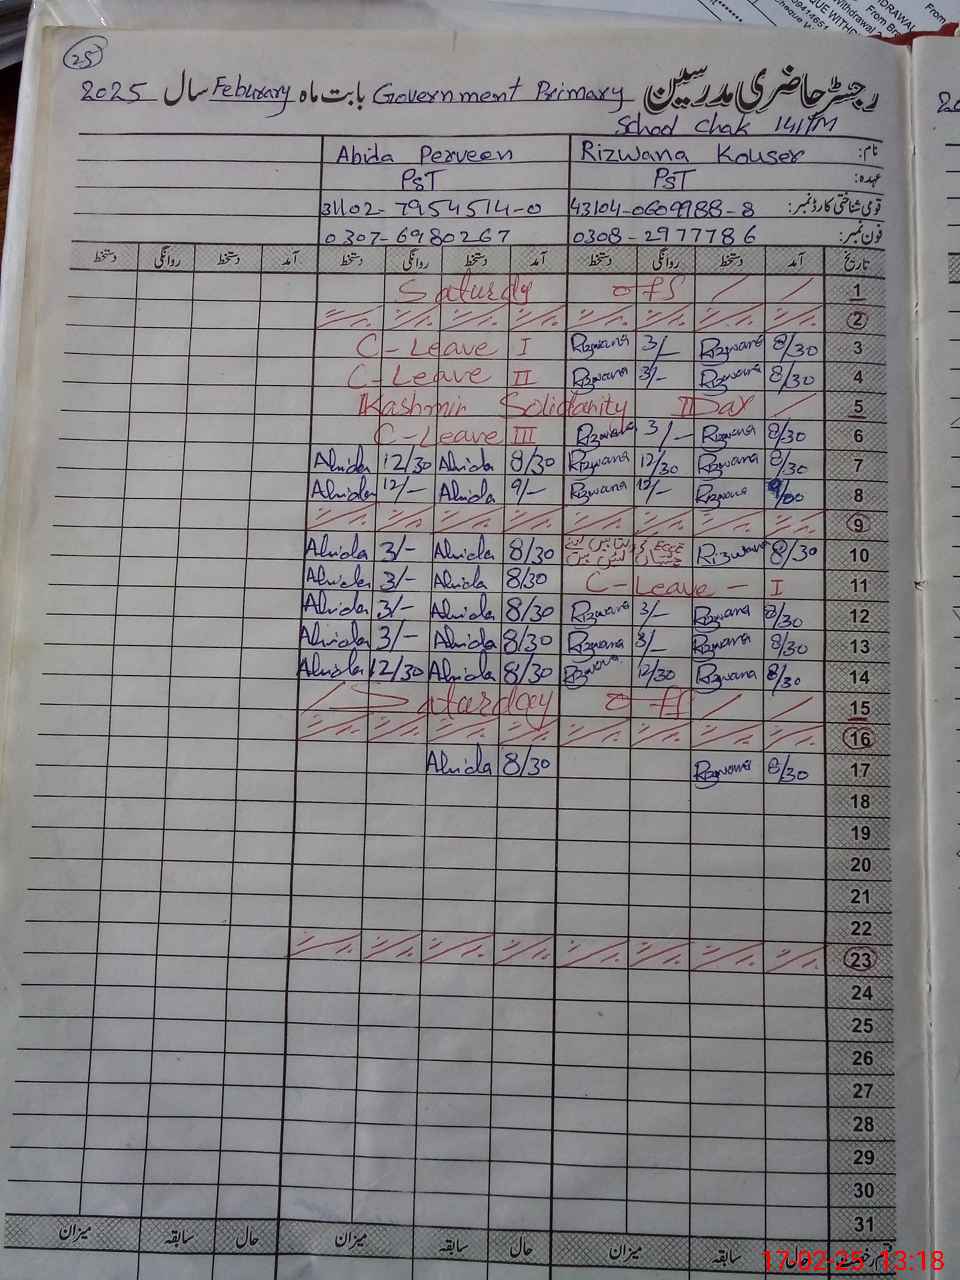 25
رجسٹر حاضری مدرسین Government Primary بابت ماہ Feburary سال 2025
School Chak 141/M
نام: Rizwana Kouser Abida Perveen
عہدہ: PST PST
قومی شناختی کارڈ نمبر: 43104-0609988-8 31102-7954514-0
فون نمبر: 0308-2977786 0307-6980267
تاریخ آمد دستخط روانگی دستخط آمد دستخط روانگی دستخط آمد دستخط روانگی دستخط
1 Saturdy offs
2
3 8/30 Rizwana 3/- Rizwana C-Leave I
4 8/30 Rizwana 3/- Rizwana C-Leave II
5 Kashmir Solidarity Day
6 8/30 Rizwana 3/- Rizwana C-Leave III
7 8/30 Rizwana 12/30 Rizwana 8/30 Abida 12/30 Abida
8 9/00 Rizwana 12/- Rizwana 9/- Abida 12/- Abida
9
10 8/30 Rizwana ECCE 8/30 Abida 3/- Abida
11 C-Leave - I 8/30 Abida 3/- Abida
12 8/30 Rizwana 3/- Rizwana 8/30 Abida 3/- Abida
13 8/30 Rizwana 3/- Rizwana 8/30 Abida 3/- Abida
14 8/30 Rizwana 12/30 Rizwana 8/30 Abida 12/30 Abida
15 Saturday off
16
17 8/30 Rizwana 8/30 Abida
18
19
20
21
22
23
24
25
26
27
28
29
30
31
سابقہ میزان حال سابقہ میزان حال سابقہ میزان
17-02-25 13:18